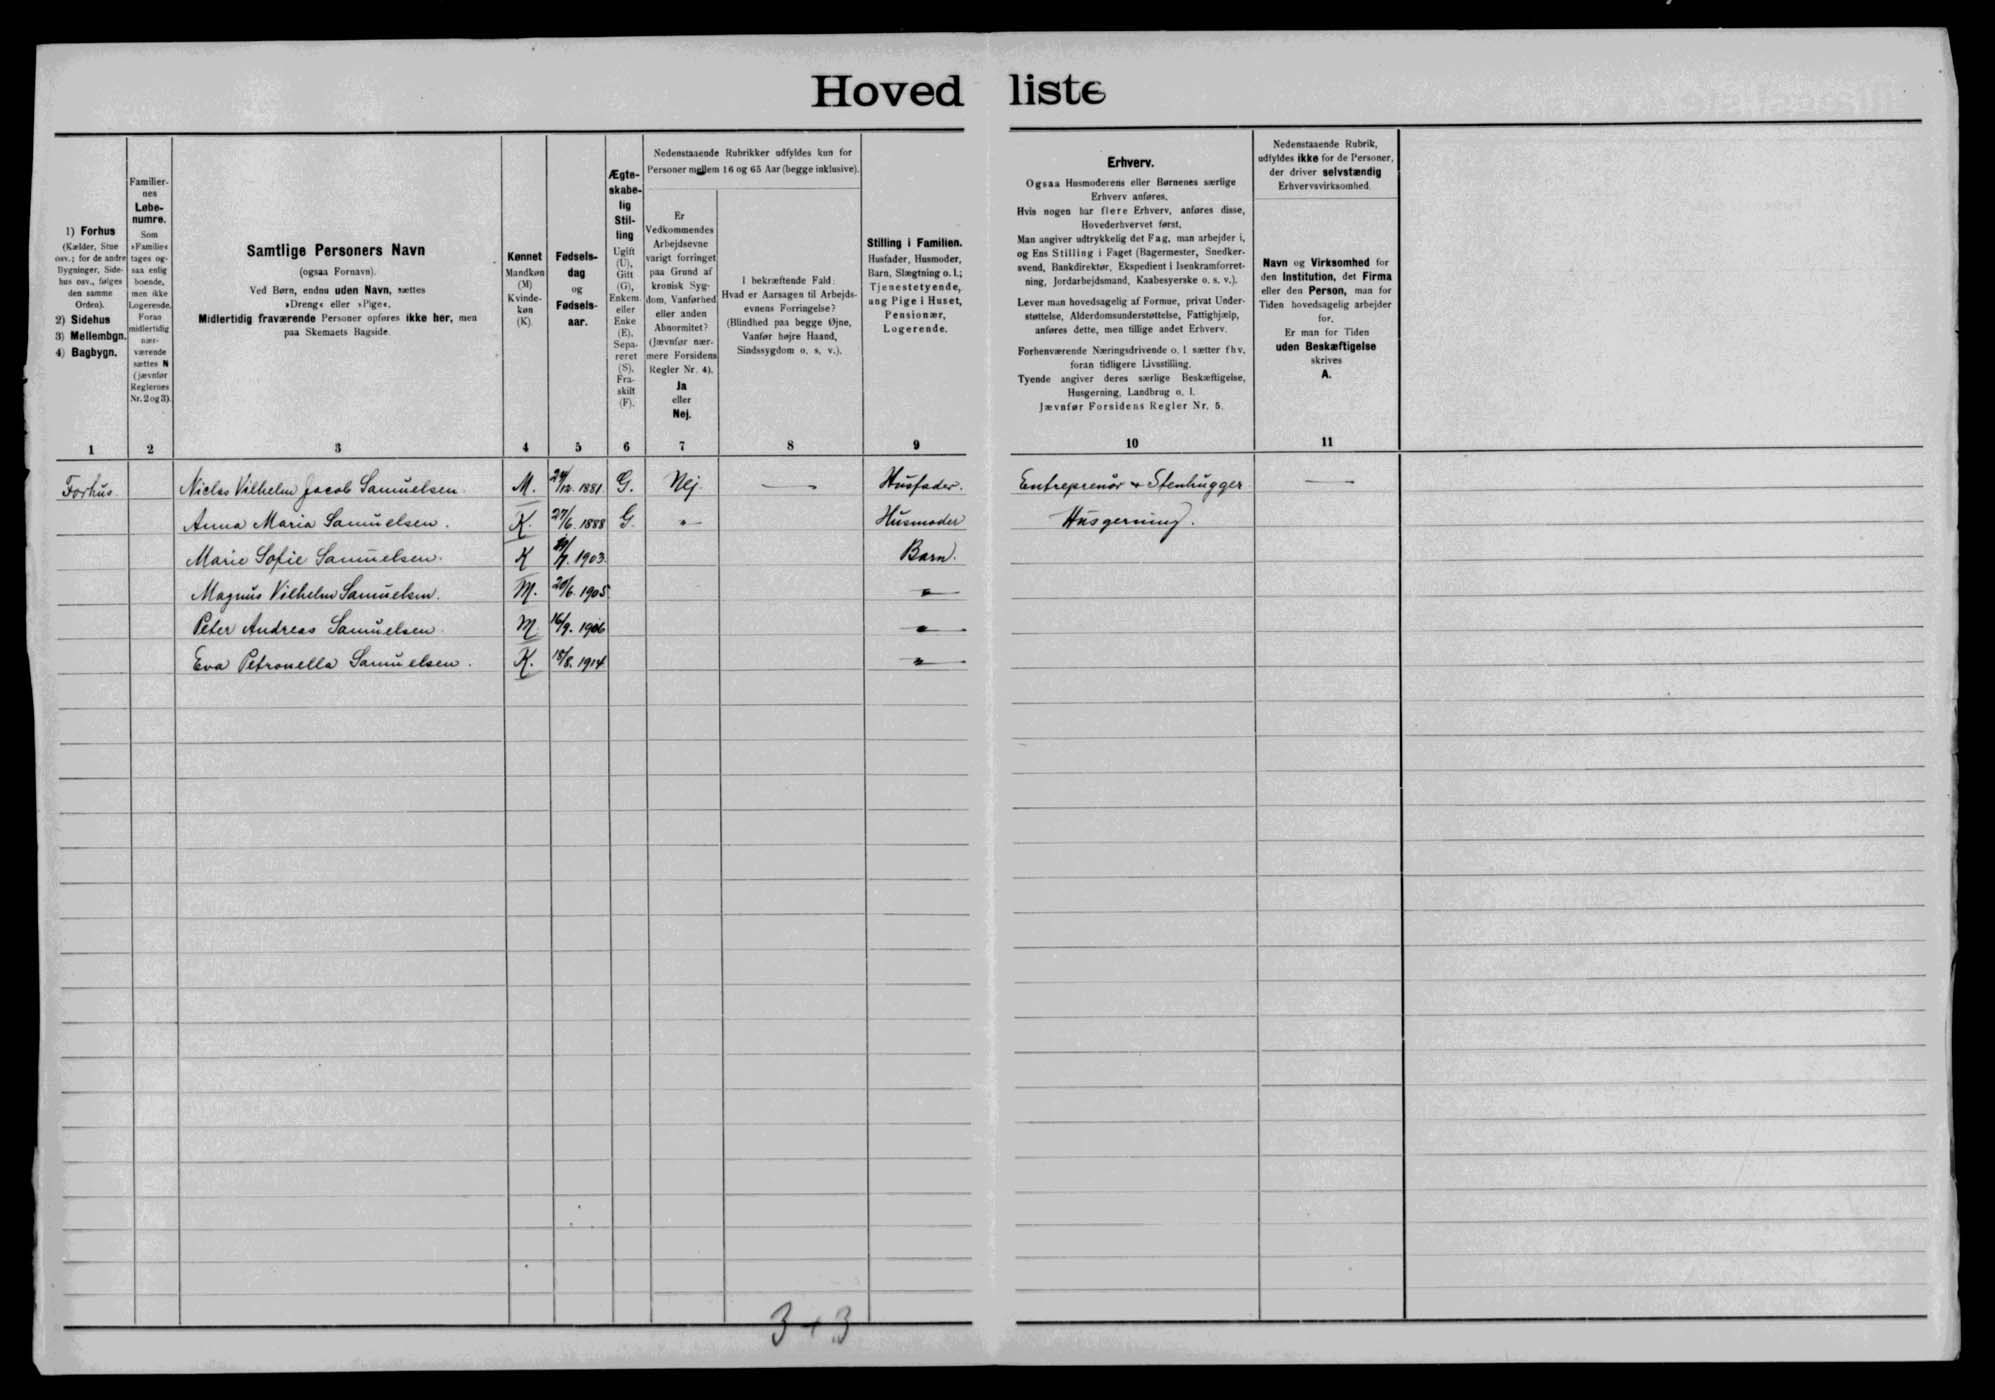 Hovedliste
1) Forhus
(Kælder, Stue
osv.; for de andre
Bygninger, Side-
hus osv., følges
den samme
Orden).
2) Sidehus
3) Mellembgn.
4) Bagbygn.
Familier-
nes
Løbe-
numre.
Som
»Familie«
tages og-
saa enlig
boende,
men ikke
Logerende.
Foran
midlertidig
nær-
værende
sættes N
(jævnfør
Reglernes
Nr. 2 og 3).
Samtlige Personers Navn
(ogsaa Fornavn).
Ved Børn, endnu uden Navn, sættes
»Dreng« eller »Pige«.
Midlertidig fraværende Personer opføres ikke her, men
paa Skemaets Bagside.
Kønnet
Mandkøn
(M)
Kvinde-
køn
(K)
Fødsels-
dag
og
Fødsels-
aar.
Ægte-
skabe-
lig
Stil-
ling
Ugift
(U),
Gift
(G),
Enkem.
eller
Enke
(E),
Sepa-
reret
(S),
Fra-
skilt
(F).
Nedenstaaende Rubrikker udfyldes kun for
Personer mellem 16 og 65 Aar (begge inklusive).
Er
Vedkommendes
Arbejdsevne
varigt forringet
paa Grund af
kronisk Syg-
dom, Vanførhed
eller anden
Abnormitet?
(Jævnfør nær-
mere Forsidens
Regler Nr. 4).
Ja
eller
Nej.
I bekræftende Fald:
Hvad er Aarsagen til Arbejds-
evnens Forringelse?
(Blindhed paa begge Øjne,
Vanfør højre Haand,
Sindssygdom o. s. v.).
Stilling i Familien.
Husfader, Husmoder,
Barn, Slægtning o. l.;
Tjenestetyende,
ung Pige i Huset,
Pensionær,
Logerende.
Erhverv.
Ogsaa Husmoderens eller Børnenes særlige
Erhverv anføres.
Hvis nogen har flere Erhverv, anføres disse,
Hovederhvervet først.
Man angiver udtrykkelig det Fag, man arbejder i,
og Ens Stilling i Faget (Bagermester, Snedker-
svend, Bankdirektør, Ekspedient i Isenkramforret-
ning, Jordarbejdsmand, Kaabesyerske o. s. v.).
Lever man hovedsagelig af Formue, privat Under-
støttelse, Alderdomsunderstøttelse, Fattighjælp,
anføres dette, men tillige andet Erhverv.
Forhenværende Næringsdrivende o. l. sætter fhv.
foran tidligere Livsstilling.
Tyende angiver deres særlige Beskæftigelse,
Husgerning, Landbrug o. l.
Jævnfør Forsidens Regler Nr. 5.
Nedenstaaende Rubrik,
udfyldes ikke for de Personer,
der driver selvstændig
Erhvervsvirksomhed.
Navn og Virksomhed for
den Institution, det Firma
eller den Person, man for
Tiden hovedsagelig arbejder
for.
Er man for Tiden
uden Beskæftigelse
skrives
A.
1 2 3 4 5 6 7 8 9 10 11
Forhus. Niclas Vilhelm Jacob Samuelsen. M. 24/12. 1881. G. Nej. — Husfader. Entreprenør & Stenhugger —
Anna Maria Samuelsen. K. 27/6. 1888 G. -"- Husmoder Husgerning.
Marie Sofie Samuelsen. K 1903. Barn.
Magnus Vilhelm Samuelsen. M. 20/6. 1905 -"-
Peter Andreas Samuelsen. M. 16/9. 1906 -"-
Eva Petronella Samuelsen. K. 18/8. 1914. -"-
3+3